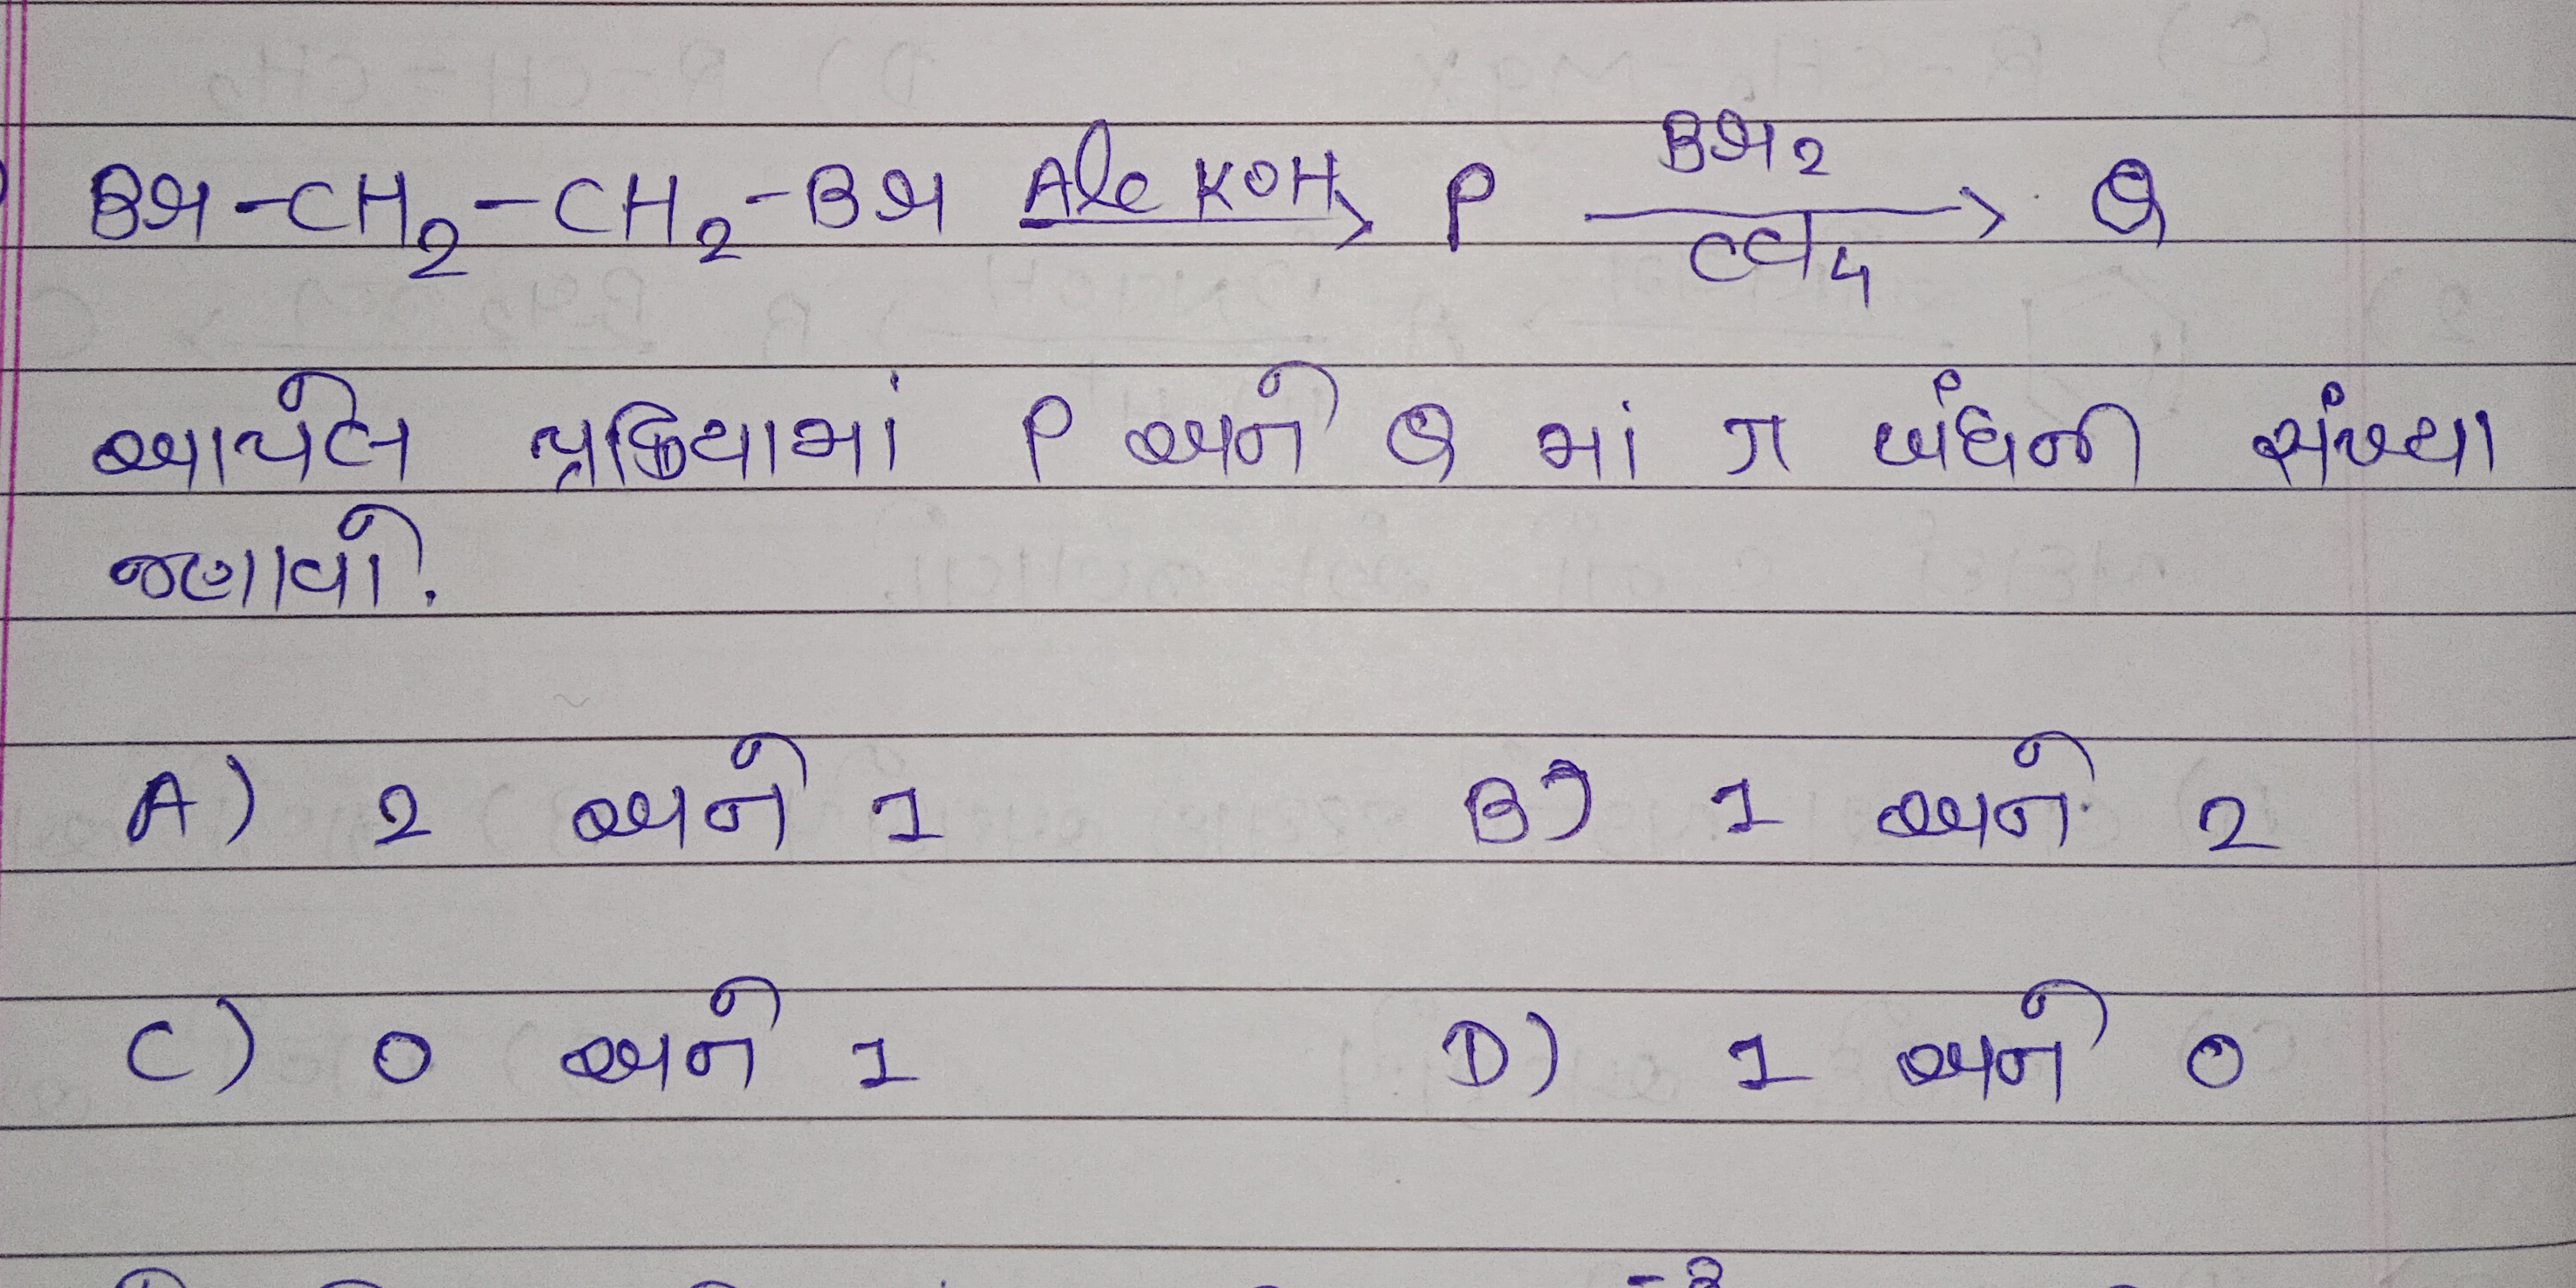 Br-CH2-CH2-Br Alc KOH → P Br2 / CCl4 → Q
આપેલ પ્રક્રિયામાં P અને Q માં π બંધની સંખ્યા
જણાવો.
A) 2 અને 1 B) 1 અને 2
C) 0 અને 1 D) 1 અને 0